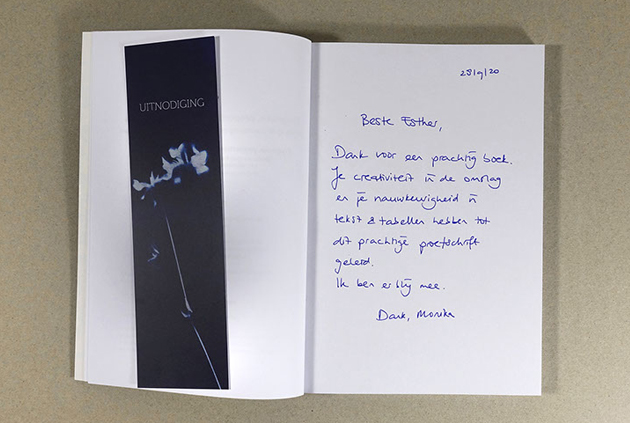 UITNODIGING
28|9|20
Beste Esther,
Dank voor een prachtig boek.
Je creativiteit in de omslag
en je nauwkeurigheid in
tekst & tabellen hebben tot
dit prachtige proefschrift
geleid.
Ik ben er blij mee.
Dank, Monika